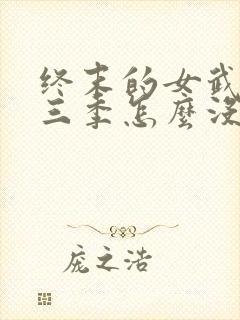 终末的女武
三季怎麼沒
庞之浩